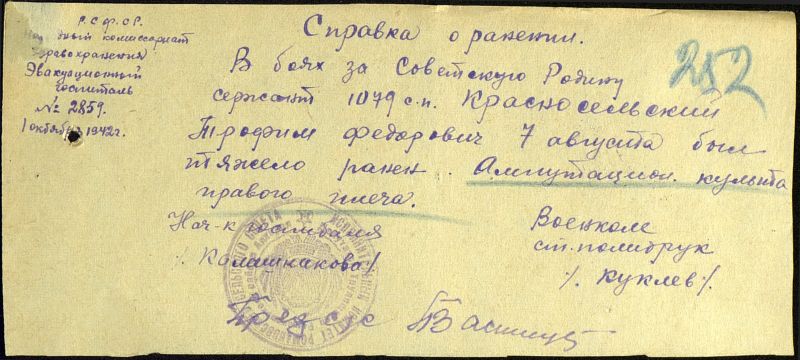 Р.С.Ф.С.Р.
комиссариат
здравохранения
Эвакуационный
госпиталь
№ 2859.
1 октября 1942г.
Справка о ранении.
252
В боях за Советскую Родину
сержант 1079 с.п. Красносельский
Трофим Федорович 7 августа был
тяжело ранен. Ампутацион. культа
правого плеча.
Нач-к госпиталя
/. Калашнакова /.
Военком
ст. политрук
/. Куклев /.